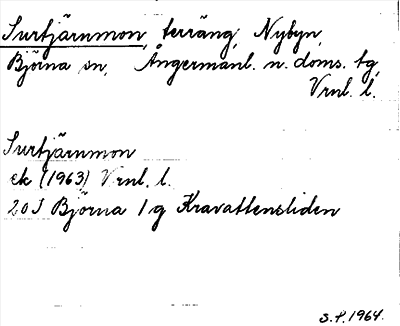 Surtjärnmon, terräng, Nybyn,
Björna sn, Ångermanl. n. doms. tg,
Vrnl. l.
Surtjärnmon
ek (1963) Vrnl. l.
20J Björna 1g Kravattensliden
S.P. 1964.